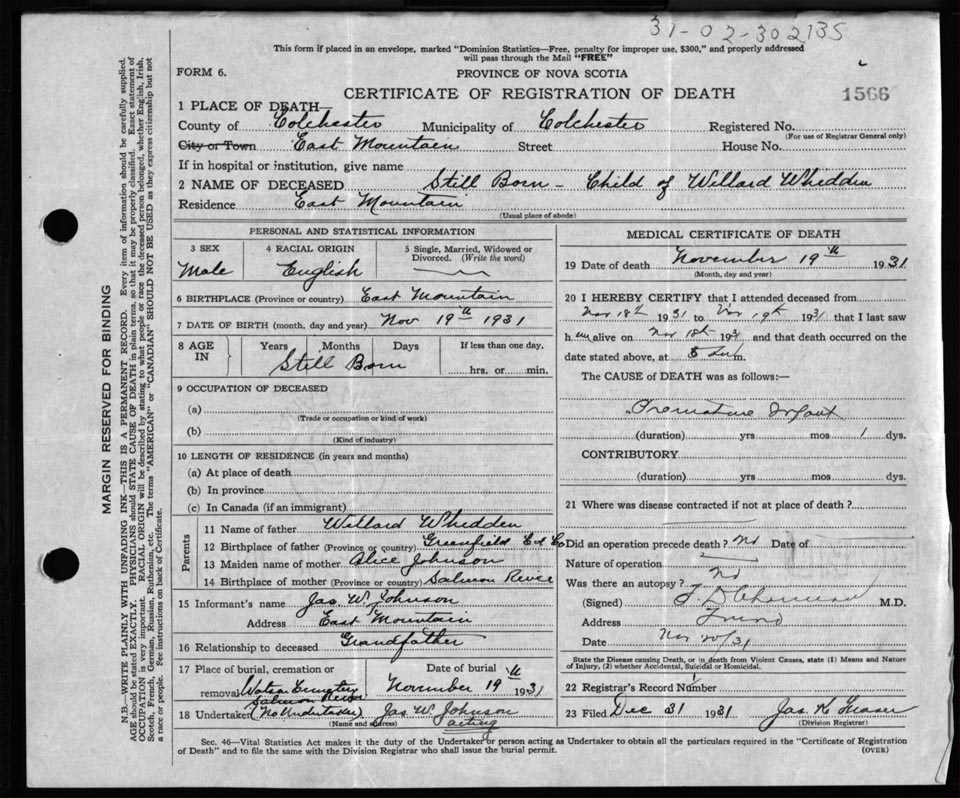 31-02-302135
This form if placed in an envelope, marked "Dominion Statistics—Free, penalty for improper use, $300," and properly addressed
will pass through the Mail "FREE"
FORM 6.
PROVINCE OF NOVA SCOTIA
CERTIFICATE OF REGISTRATION OF DEATH
1566
1 PLACE OF DEATH—
County of Colchester Municipality of Colchester Registered No.
(For use of Registrar General only)
City or Town East Mountain Street House No.
If in hospital or institution, give name
2 NAME OF DECEASED Still Born - Child of Willard Whidden
Residence East Mountain
(Usual place of abode)
PERSONAL AND STATISTICAL INFORMATION
3 SEX 4 RACIAL ORIGIN 5 Single, Married, Widowed or
Divorced. (Write the word)
Male English
6 BIRTHPLACE (Province or country) East Mountain
7 DATE OF BIRTH (month, day and year) Nov 19th 1931
8 AGE IN Years Months Days If less than one day,
Still Born hrs. or min.
9 OCCUPATION OF DECEASED
(a)
(Trade or occupation or kind of work)
(b)
(Kind of industry)
10 LENGTH OF RESIDENCE (in years and months)
(a) At place of death
(b) In province
(c) In Canada (if an immigrant)
Parents
11 Name of father Willard Whidden
12 Birthplace of father (Province or country) Greenfield Col Co
13 Maiden name of mother Alice Johnson
14 Birthplace of mother (Province or country) Salmon River
15 Informant's name Jas W Johnson
Address East Mountain
16 Relationship to deceased Grandfather
17 Place of burial, cremation or Date of burial
removal Watson Cemetery Salmon River November 19th 1931
18 Undertaker (No Undertaker) Jas W Johnson
(Name and address) acting
MEDICAL CERTIFICATE OF DEATH
19 Date of death November 19th 1931
(Month, day and year)
20 I HEREBY CERTIFY that I attended deceased from
Nov 18th 1931 to Nov 19th 1931 that I last saw
h im alive on Nov 18th 1931 and that death occurred on the
date stated above, at 5 m.
The CAUSE of DEATH was as follows:—
Premature Infant
(duration) yrs mos 1 dys.
CONTRIBUTORY
(duration) yrs mos dys.
21 Where was disease contracted if not at place of death?
Did an operation precede death? No Date of
Nature of operation
Was there an autopsy? No
(Signed) M.D.
Address Truro
Date Nov 20/31
State the Disease causing Death, or in death from Violent Causes, state (1) Means and Nature
of Injury, (2) whether Accidental, Suicidal or Homicidal.
22 Registrar's Record Number 1
23 Filed Dec 31 1931 Jas K Fraser
(Division Registrar)
Sec. 46—Vital Statistics Act makes it the duty of the Undertaker or person acting as Undertaker to obtain all the particulars required in the "Certificate of Registration
of Death" and to file the same with the Division Registrar who shall issue the burial permit.
(OVER)
MARGIN RESERVED FOR BINDING
N.B.—WRITE PLAINLY WITH UNFADING INK—THIS IS A PERMANENT RECORD. Every item of information should be carefully supplied.
AGE should be stated EXACTLY. PHYSICIANS should STATE CAUSE OF DEATH in plain terms, so that it may be properly classified. Exact statement of
OCCUPATION is very important. RACIAL ORIGIN will be described by stating to what people or race the deceased person belonged, whether English, Irish,
Scotch, French, German, Russian, Ruthenian, etc. The terms "AMERICAN" or "CANADIAN" SHOULD NOT BE USED as they express citizenship but not
a race or people. See instructions on back of Certificate.